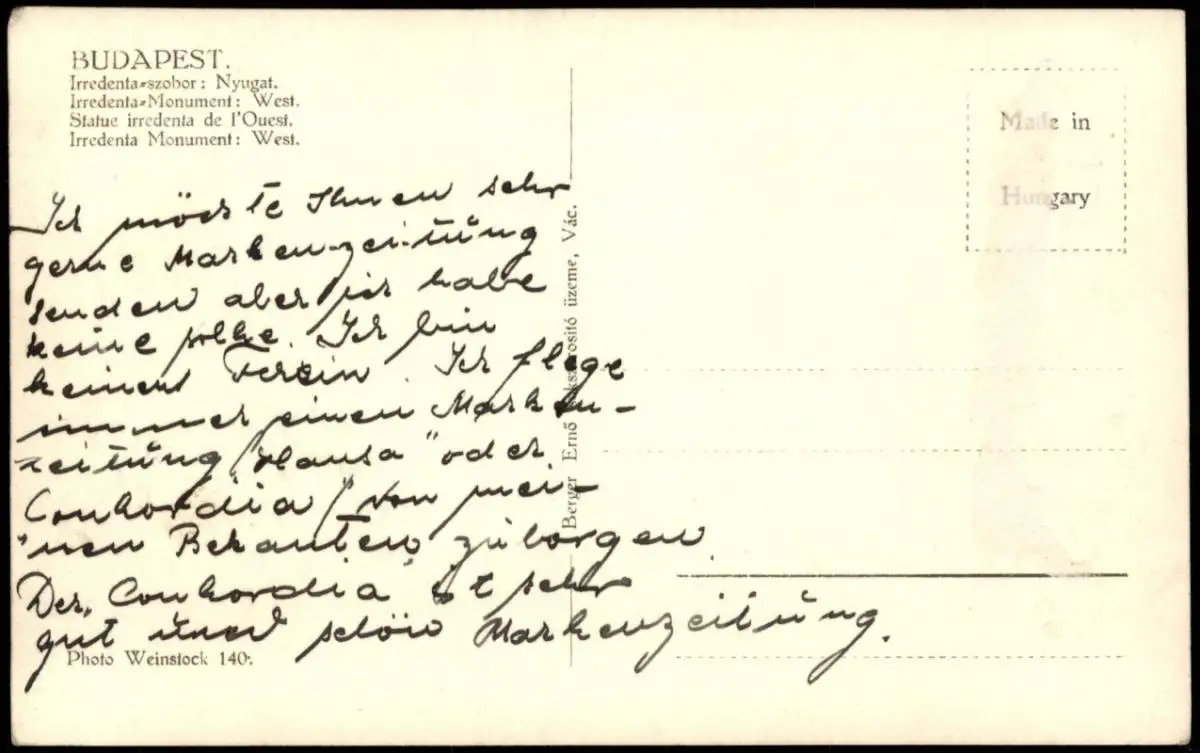 BUDAPEST.
Irredenta-szobor: Nyugat.
Irredenta-Monument: West.
Statue irredenta de l'Ouest.
Irredenta Monument: West.
Made in
Hungary
Ich möchte Ihnen sehr
gerne Marken-zei-tung
senden aber ich habe
keine solche. Ich bin
keinem Verein. Ich flege
immer einen Marken-
zeitung "Hansa" oder
Conkordia / von mei-
nen Bekanten zu borgen
Der, Conkordia ist sehr
gut und schön Markenzeitung.
Berger Ernő üzeme, Vác.
Photo Weinstock 140.